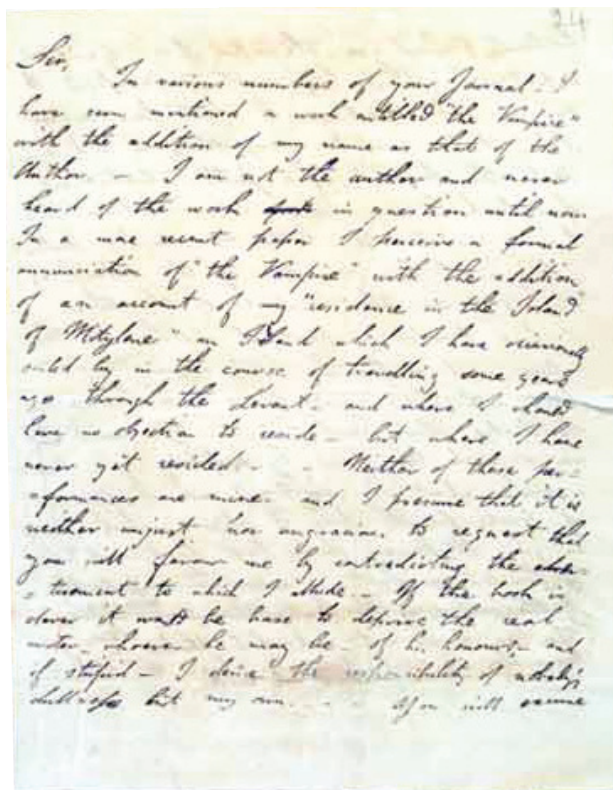 24
Sir,
In various numbers of your Journal - I
have seen mentioned a work entitled "the Vampire"
with the addition of my name as that of the
Author. - I am not the author and never
heard of the work in question until now
In a more recent paper I perceive a formal
annunciation of "the Vampire" with the addition
of an account of my "residence in the Island
of Mitylane" an Island which I have occasionally
sailed by in the course of travelling some years
ago through the Levant - and where I should
have no objection to reside - but where I have
never yet resided. - - Neither of these per=
=formances are mine - and I presume that it is
neither unjust nor ungracious to request that
you will favour me by contradicting the adver
=tisement to which I allude. - If the book is
clever it would be base to deprive the real
writer - whoever he may be - of his honours - and
if stupid - I desire the responsibility of nobody's
dullness but my own. - - You will excuse